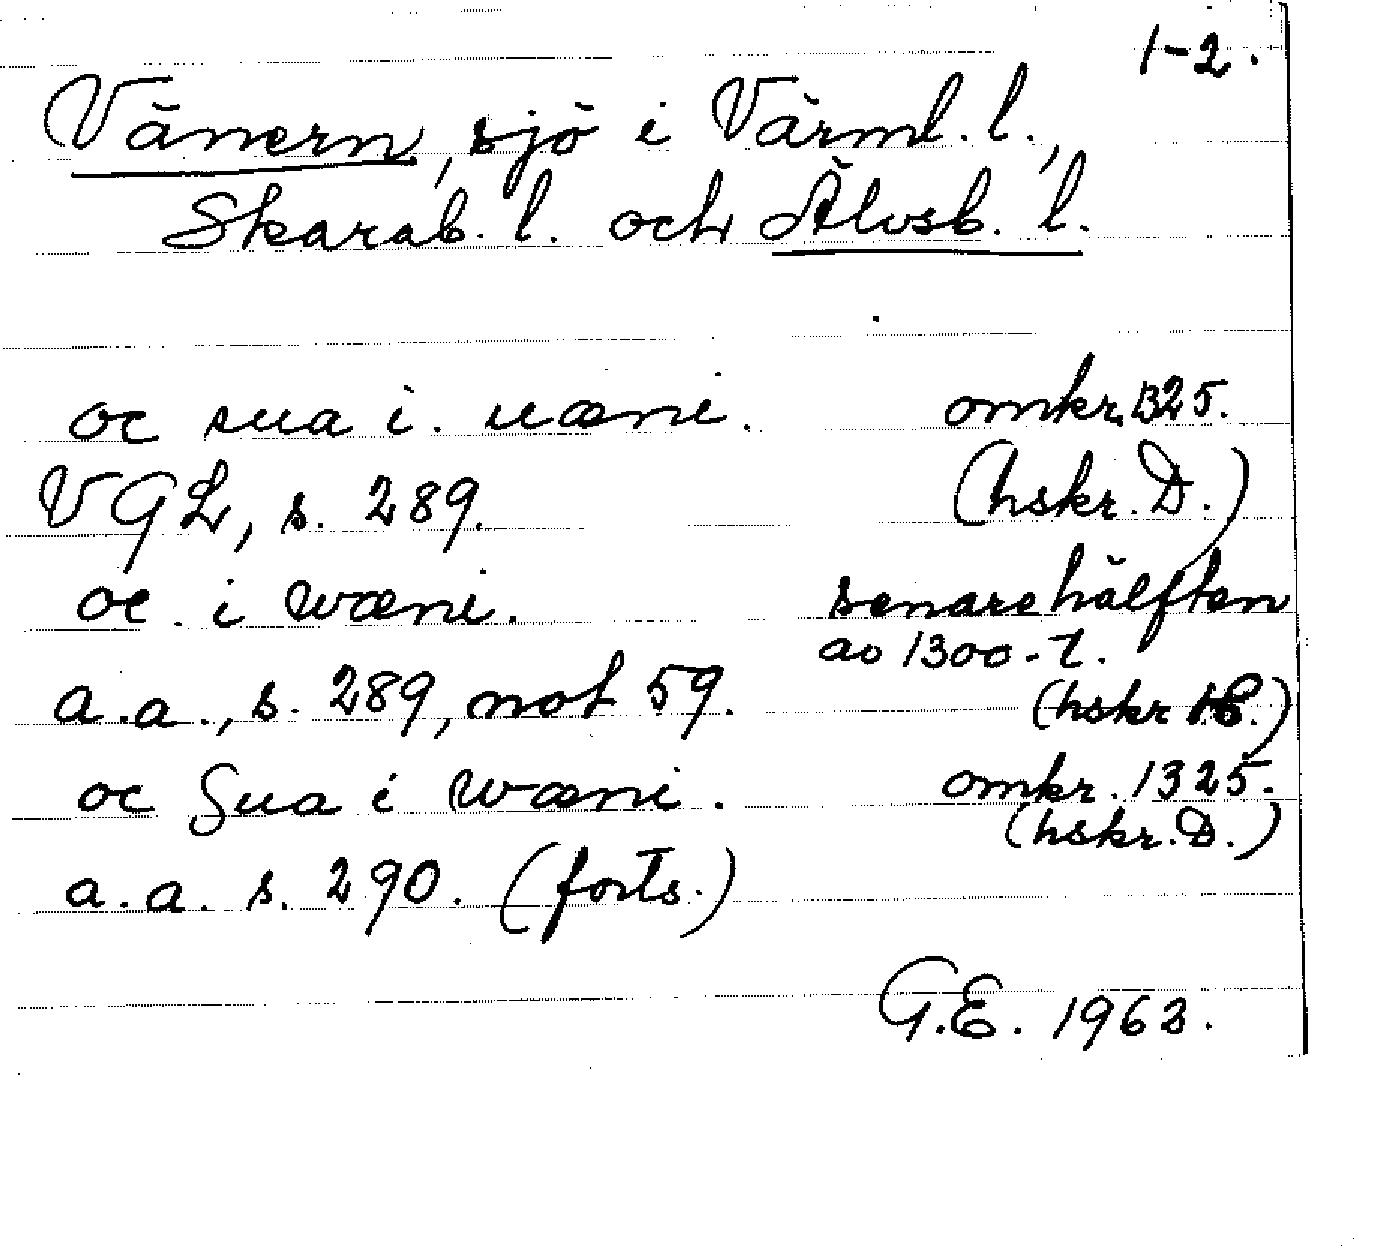 1-2.
Vänern, sjö i Värml. l.,
Skarab. l. och Älvsb. l.
oc sua i. uæni. omkr. 1325.
VGL, s. 289. (hskr. D.)
oc. i wæni. senare hälften
av 1300-t.
a.a., s. 289, not 59. (hskr
oc Sua i wæni. omkr. 1325.
(hskr. D.)
a.a. s. 290. (forts.)
G.E. 1963.